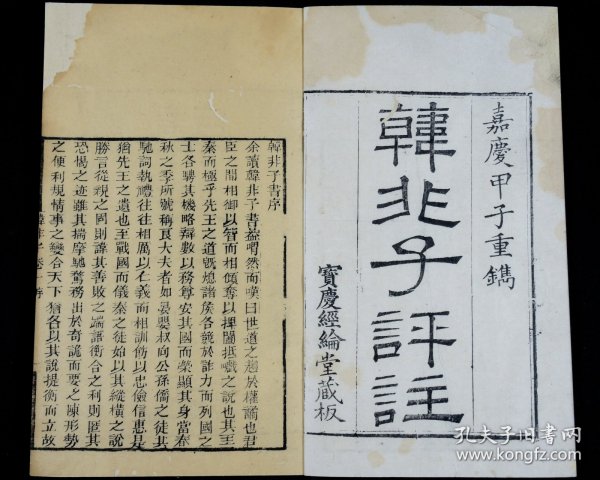 嘉慶甲子重鐫
韓非子評註
寶慶經綸堂藏板
韓非子書序
余讀韓非子書蓋喟然而嘆曰世道之趨於權譎也君
臣之間相御以智而相傾奪以捭闔抵巇之說也其至
秦而極乎先王之道既熄諸侯各競於詐力而列國之
士各騁其機略辯數以務尊安其國而榮顯其身當春
秋之季所號稱良大夫者如晏嬰叔向公孫僑之徒其
馳詞執禮往往相厲以仁義而相訓飭以忠儉信惠是
猶先王之遺也至戰國而儀秦之徒始以其縱橫之說
勝言從親之國則諱其善敗之端語衡合之利則匿其
恐惕之迹雖其揣摩馳騖務出於奇詭而要之陳形勢
之便利規情事之變合天下猶各以其說提衡而立故
韓非子卷一序
孔夫子旧书网
www.kongfz.com